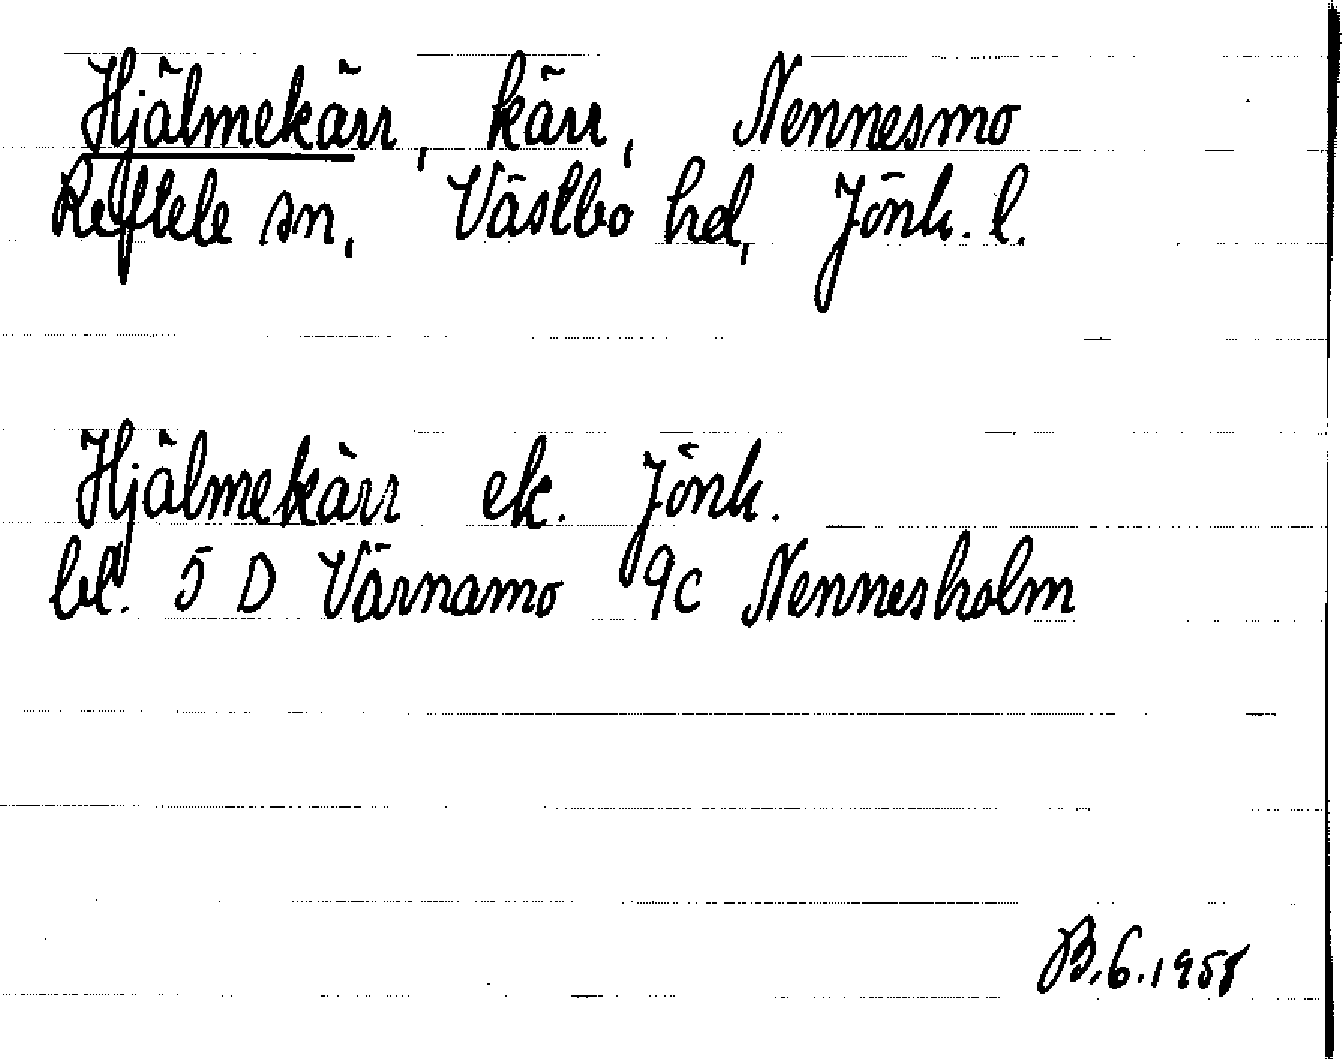 Hjälmekärr, kärr, Nennesmo
Reftele sn, Västbo hd, Jönk. l.
Hjälmekärr ek. Jönk.
bl. 5 D Värnamo 9c Nennesholm
B.6.1958